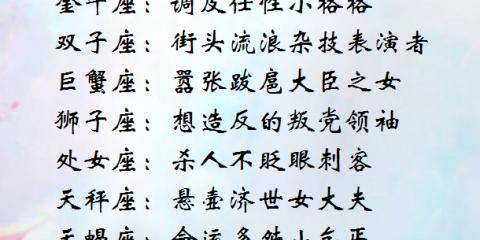 金牛座：调皮任性小格格
双子座：街头流浪杂技表演者
巨蟹座：嚣张跋扈大臣之女
狮子座：想造反的叛党领袖
处女座：杀人不眨眼刺客
天秤座：悬壶济世女大夫
天蝎座：命运多舛小乞丐